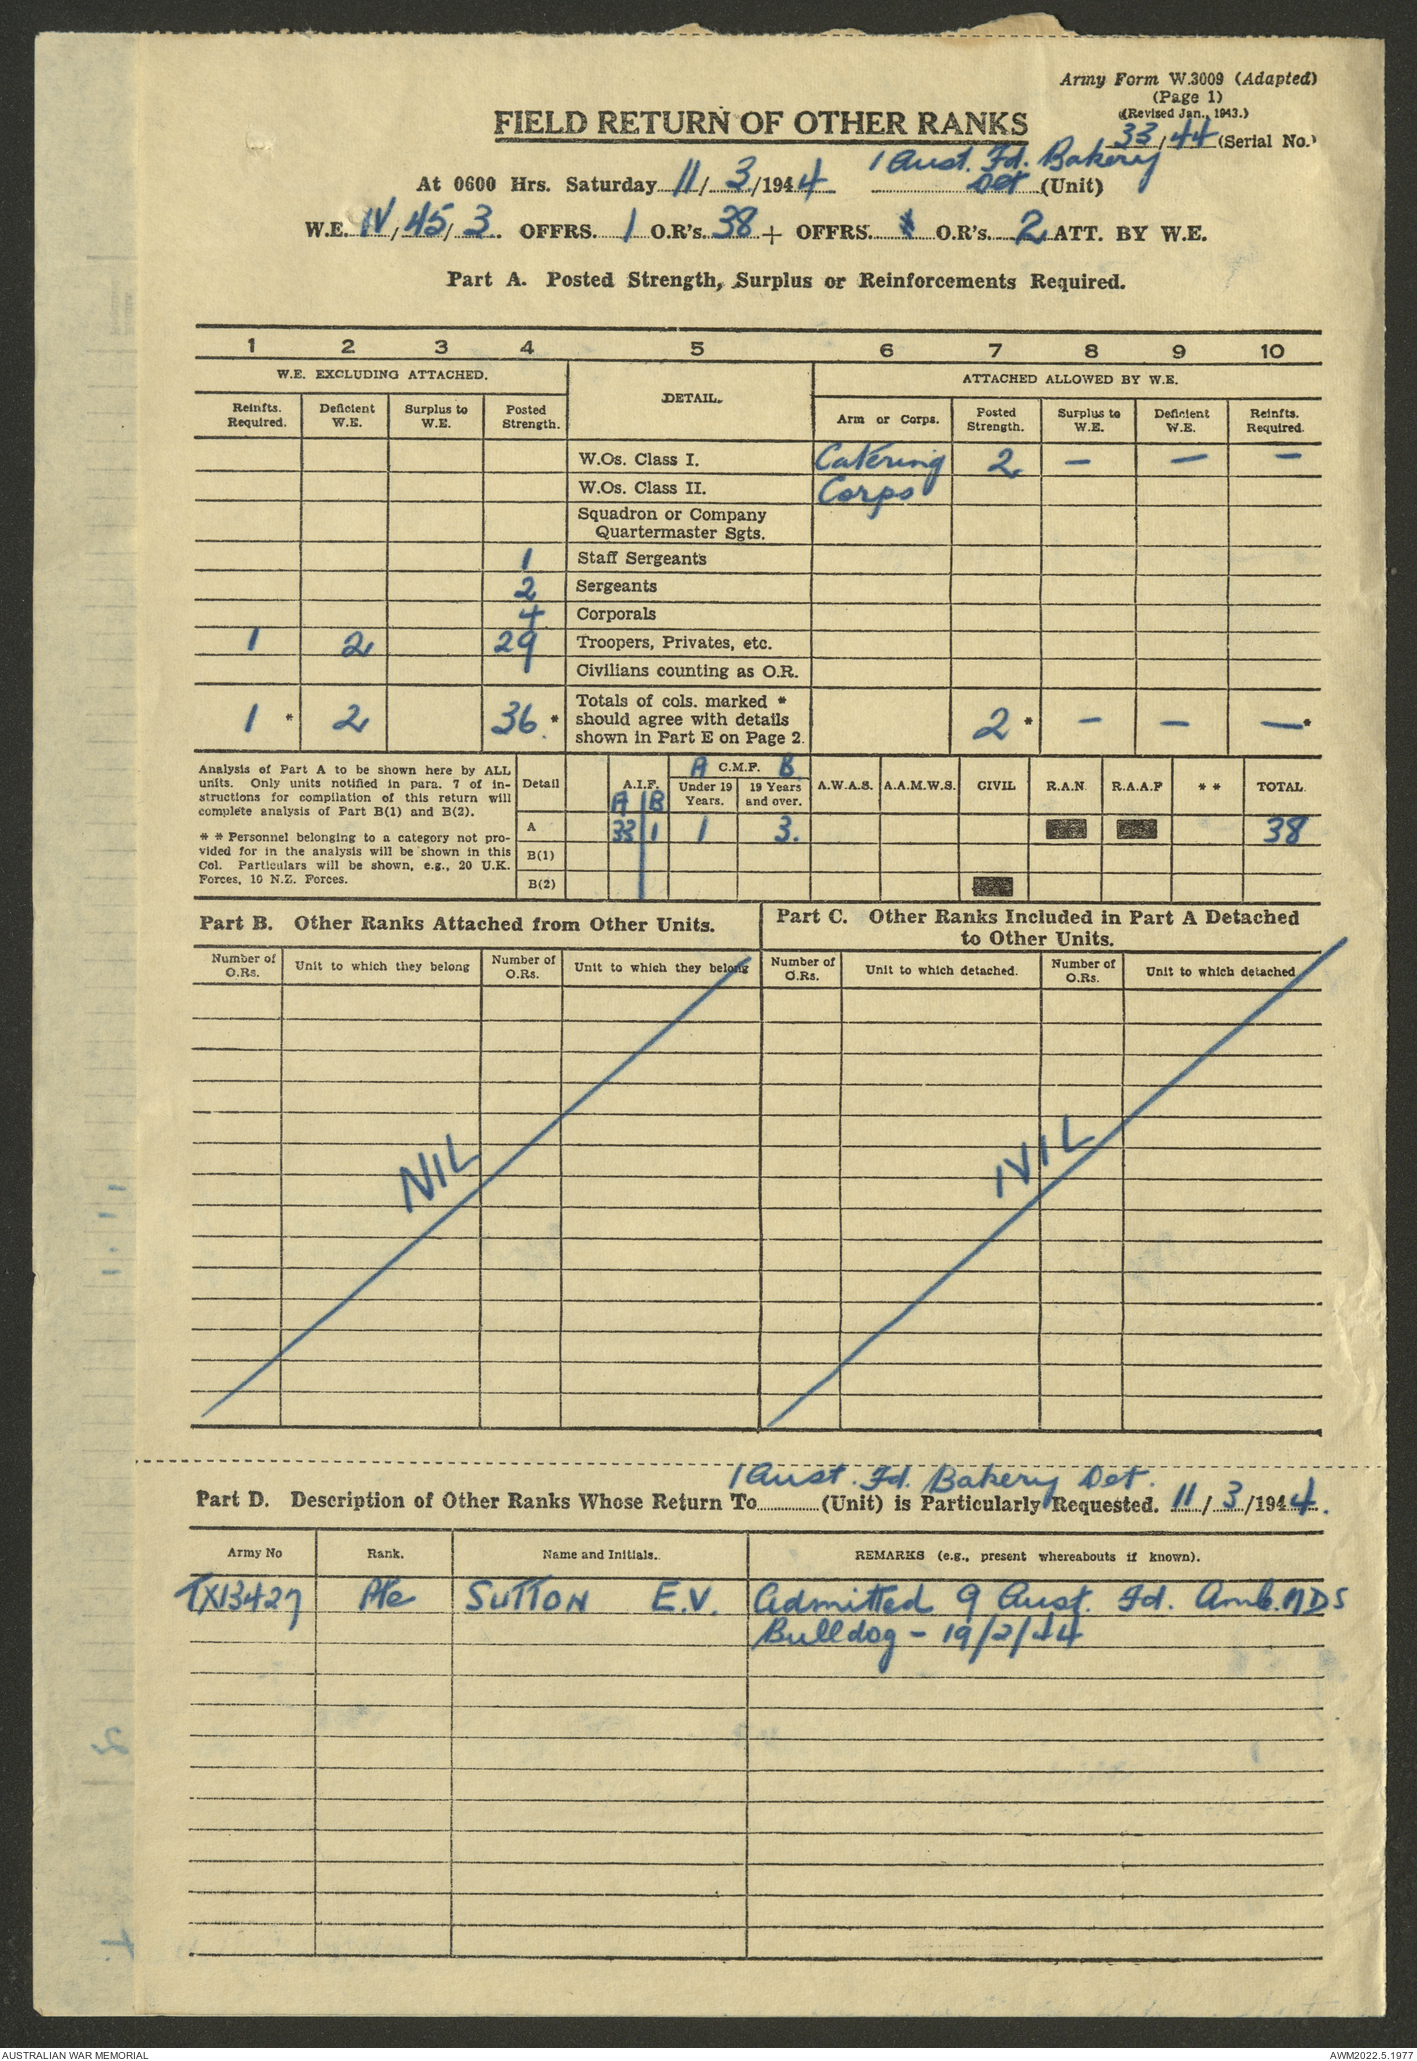 Army Form W.3009 (Adapted)
(Page 1)
(Revised Jan., 1943.)
FIELD RETURN OF OTHER RANKS
33/44 (Serial No.)
1 Aust. Fd. Bakery
At 0600 Hrs. Saturday 11/3/1944 Det (Unit)
W.E. IV/45/3. OFFRS. 1 O.R's. 38 + OFFRS. O.R's. 2 ATT. BY W.E.
Part A. Posted Strength, Surplus or Reinforcements Required.
1 2 3 4 5 6 7 8 9 10
W.E. EXCLUDING ATTACHED. DETAIL. ATTACHED ALLOWED BY W.E.
Reinfts. Required. Deficient W.E. Surplus to W.E. Posted Strength. Arm or Corps. Posted Strength. Surplus to W.E. Deficient W.E. Reinfts. Required.
W.Os. Class I. Catering 2 — — —
W.Os. Class II. Corps
Squadron or Company
Quartermaster Sgts.
1 Staff Sergeants
2 Sergeants
4 Corporals
1 2 29 Troopers, Privates, etc.
Civilians counting as O.R.
Totals of cols. marked *
1 * 2 36. * should agree with details 2 * — — —*
shown in Part E on Page 2.
Analysis of Part A to be shown here by ALL
units. Only units notified in para. 7 of in-
structions for compilation of this return will
complete analysis of Part B(1) and B(2).
* * Personnel belonging to a category not pro-
vided for in the analysis will be shown in this
Col. Particulars will be shown, e.g., 20 U.K.
Forces, 10 N.Z. Forces.
A C.M.F. B
Detail A.I.F. Under 19 Years. 19 Years and over. A.W.A.S. A.A.M.W.S. CIVIL R.A.N. R.A.A.F * * TOTAL
A B
A 33 1 1 3. 38
B(1)
B(2)
Part B. Other Ranks Attached from Other Units.
Number of O.Rs. Unit to which they belong Number of O.Rs. Unit to which they belong
NIL
Part C. Other Ranks Included in Part A Detached
to Other Units.
Number of O.Rs. Unit to which detached. Number of O.Rs. Unit to which detached
NIL
1 Aust. Fd. Bakery Det.
Part D. Description of Other Ranks Whose Return To (Unit) is Particularly Requested. 11/3/1944.
Army No Rank. Name and Initials. REMARKS (e.g., present whereabouts if known).
TX13427 Pte SUTTON E.V. Admitted 9 Aust. Fd. Amb. MDS
Bulldog - 19/2/44
AUSTRALIAN WAR MEMORIAL AWM2022.5.1977